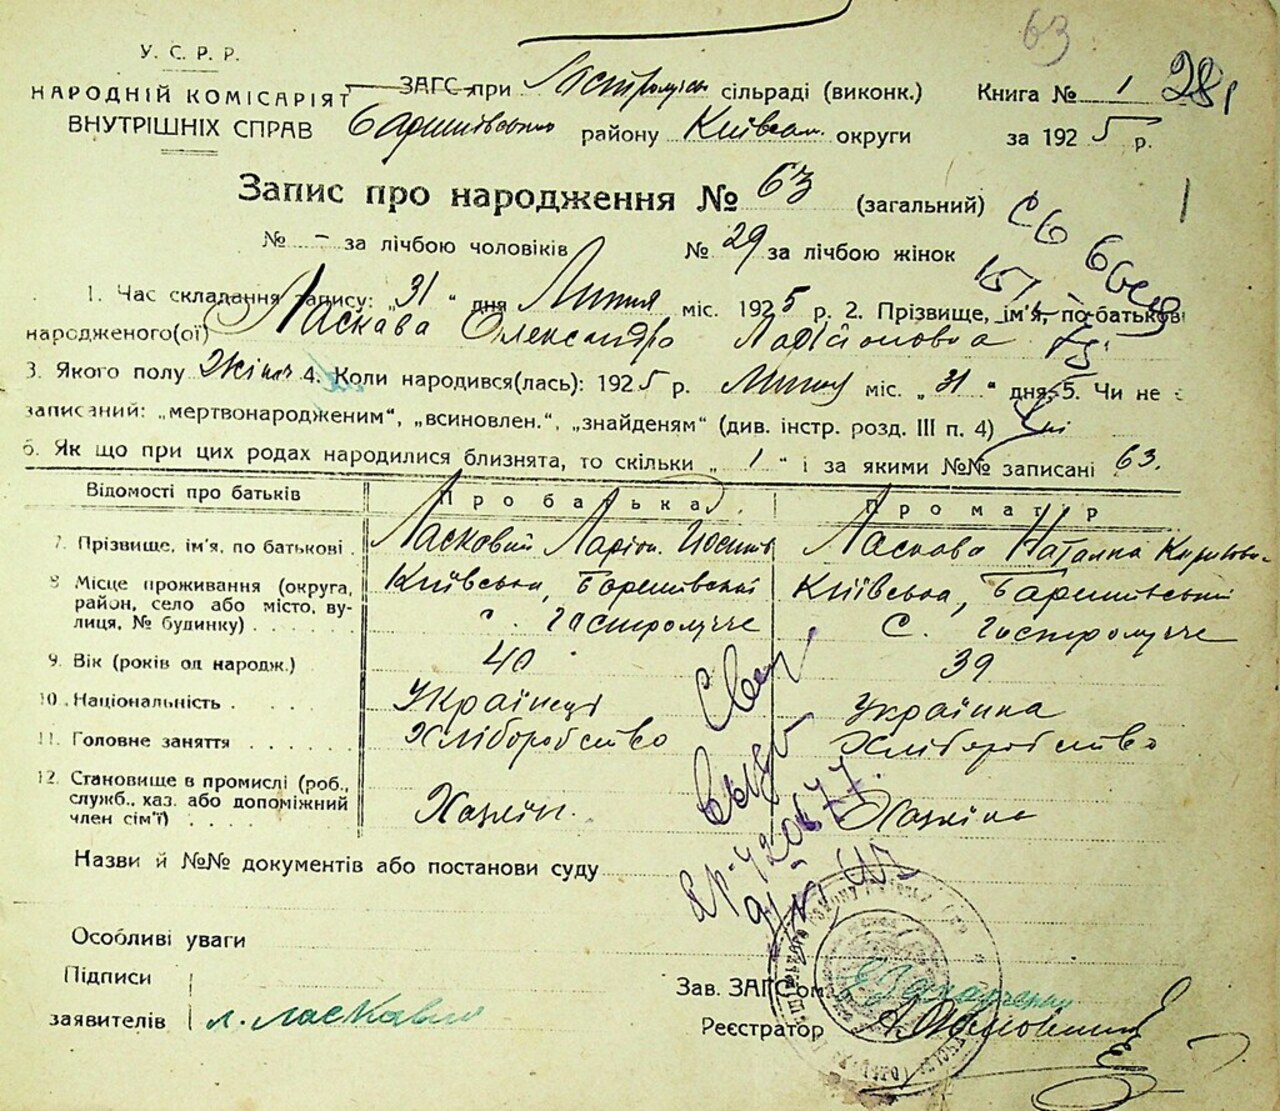 63
У. С. Р. Р.
НАРОДНІЙ КОМІСАРІЯТ
ВНУТРІШНІХ СПРАВ
ЗАГС при сільраді (виконк.)
Книга № 1 28
району округи
за 1925 р.
Запис про народження № 63 (загальний)
№ - за лічбою чоловіків № 29 за лічбою жінок
1. Час складання запису: „31“ дня Липня міс. 1925 р. 2. Прізвище, ім'я, по-батькові
народженого(ої) Ласкава Олександра Ларіоновна
3. Якого полу жіноч 4. Коли народився(лась): 1925 р. Липня міс. „31“ дня 5. Чи не є
записаний: „мертвонародженим“, „всиновлен.“, „знайденям“ (див. інстр. розд. III п. 4) Ні
6. Як що при цих родах народилися близнята, то скільки „1“ і за якими №№ записані 63.
Відомості про батьків Про батька Про матір
7. Прізвище, ім'я, по батькові Ласковий Ларіон Ласкова Наталка
8 Місце проживання (округа, Київська, Баришівський Київська, Баришівський
район, село або місто, ву-
лиця, № будинку) с. Гостролуччє С. Гостролуччє
9. Вік (років од народж.) 40 39
10. Національність Українець Українка
11. Головне заняття Хліборобство Хліборобство
12. Становище в промислі (роб.,
служб., хаз. або допоміжний
член сім'ї) Хазяїн. Хазяїка
Назви й №№ документів або постанови суду
Особливі уваги
Підписи
заявителів Л. Ласкавий
Зав. ЗАГС'ом
Реєстратор